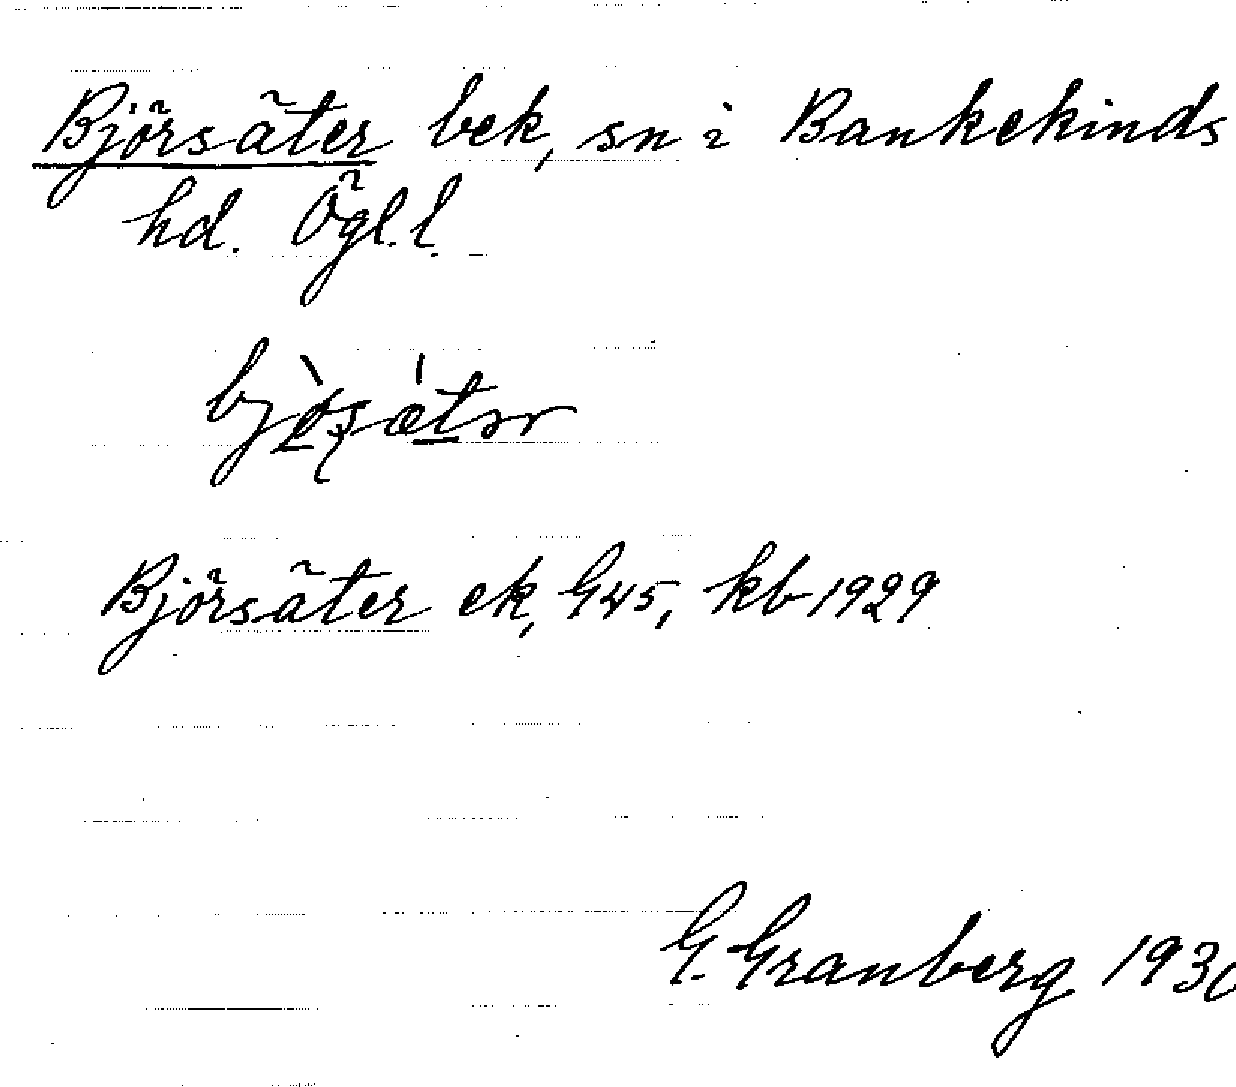 Björsäter bek, sn i Bankekinds
hd. Ögl.l.
Björsäter ek, G45, kb 1929
G. Granberg 193